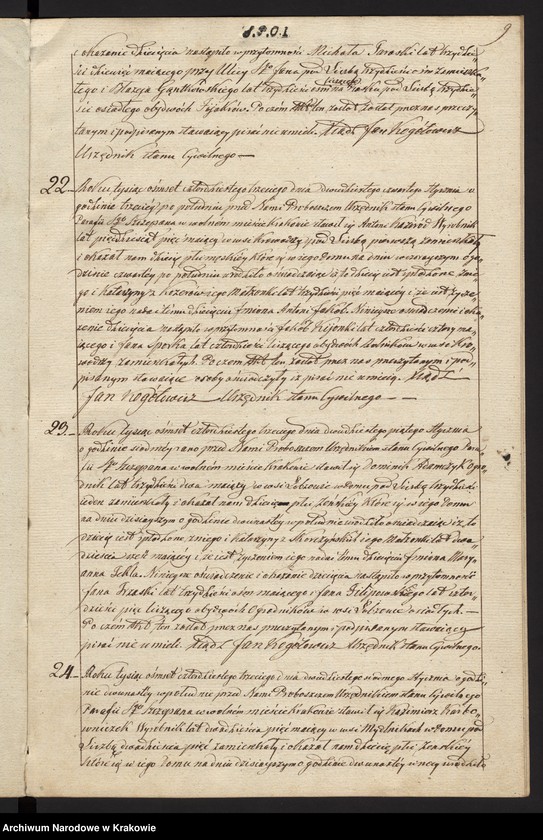 1.9.0.1.
9
okazanie dziecięcia nastąpiło w przytomności Michała lat trzydzie-
ści dziewięć maiącego przy Ulicy Sgo Jana pod Liczbą trzydzieści ośm zamieszka-
łego i Błażeja lat trzydzieści ośm na Piasku pod Liczbą trzydzie-
ści osiadłego obydwóch Poczem Akt ten został został przez nas przeczy-
tanym i podpisanym stawaiący pisać nie umieli. Xiądz Jan Kogółowicz
Urzędnik Stanu Cywilnego —
22 Roku tysiąc ośmset czterdziestego trzeciego dnia dwudziestego czwartego Stycznia o
godzinie trzeciej po południu przed Nami Proboszczem Urzędnikiem Stanu Cywilnego
Parafii Sgo Szczepana w wolnem mieście Krakowie stawił się Antoni Wyrobnik
lat pięćdziesiąt pięć maiący we wsi Krowodrzy pod Liczbą pierwszą zamieszkały
i okazał nam dziecię płci męzkiey które się w iego Domu na dniu wczorayszym o go-
dzinie czwartey po południu urodziło oświadczaiąc iż to dziecię iest spłodzone z nie-
go i Katarzyny z iego Małżonki lat trzydzieści pięć maiącey i że iest życze-
niem iego nadać temu dziecięciu Imiona Antoni Jakób. Ninieysze oświadczenie i oka-
zanie dziecięcia nastąpiło w przytomności Jakób Kijonki lat czterdzieści cztery ma-
iącego i Jana Sporka lat czterdzieści liczącego obydwóch we wsi Kro-
wodrzy zamieszkałych. Poczem Akt ten został przez nas przeczytanym i pod-
pisanym stawaiące osoby oświadczyły iż pisać nie umieią. Xiądz
Jan Kogółowicz Urzędnik Stanu Cywilnego —
23 Roku tysiąc ośmset czterdziestego trzeciego dnia dwudziestego piątego Stycznia
o godzinie siódmey rano przed Nami Proboszczem Urzędnikiem Stanu Cywilnego Para-
fii Sgo Szczepana w wolnem mieście Krakowie stawił się Dominik Adamczyk Ogro-
dnik lat trzydzieści dwa maiący we wsi Łobzowie w Domu pod Liczbą trzydzieści
ieden zamieszkały i okazał nam dziecię płci żeńskiey które się w iego Domu
na dniu dzisieyszym o godzinie dwunastey w południe urodziło oświadczaiąc iż to
dziecię iest spłodzone z niego i Katarzyny z Skorczyńskich iego Małżonki lat dwa-
dzieścia sześć maiącey i że iest życzeniem iego nadać temu dziecięciu Imiona Mary-
anna Tekla. Ninieysze oświadczenie i okazanie dziecięcia nastąpiło w przytomności
Jana lat trzydzieści ośm maiącego i Jana Filipowskiego lat czter-
dzieści pięć liczącego obydwóch Ogrodników we wsi Łobzowie osiadłych —
Poczem Akt ten został przez nas przeczytanym i podpisanym stawaiący
pisać nie umieli. Xiądz Jan Kogółowicz Urzędnik Stanu Cywilnego.
24 Roku tysiąc ośmset czterdziestego trzeciego dnia dwudziestego siódmego Stycznia o godzi-
nie dwunastey w południe przed Nami Proboszczem Urzędnikiem Stanu Cywilnego
Parafii Sgo Szczepana w wolnem mieście Krakowie stawił się Kazimierz Karbo-
wniczek Wyrobnik lat dwadzieścia pięć maiący we wsi Mydlnikach w Domu pod
Liczbą dwadzieścia pięć zamieszkały i okazał nam dziecię płci żeńskiey
które się w iego Domu na dniu dzisieyszym o godzinie dwunastey w nocy urodziło
Archiwum Narodowe w Krakowie